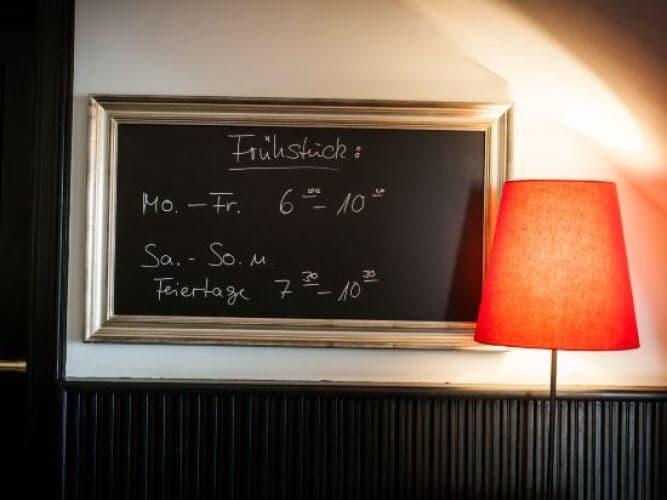 Frühstück:
Mo. – Fr. 6⁰⁰ – 10⁰⁰
Sa. - So. u.
Feiertage 7³⁰ – 10³⁰